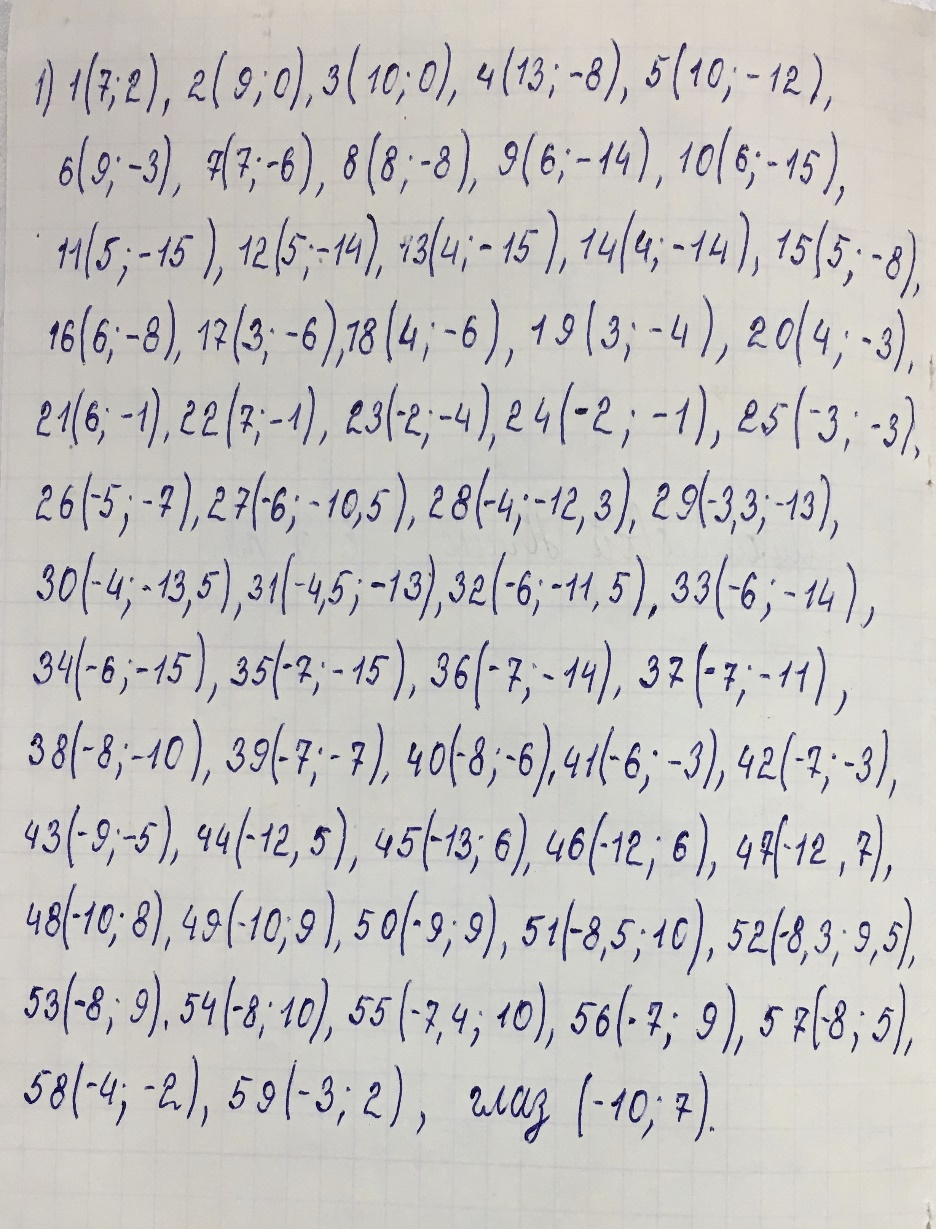 1) 1(7;2), 2(9;0), 3(10;0), 4(13;-8), 5(10;-12),
6(9;-3), 7(7;-6), 8(8;-8), 9(6;-14), 10(6;-15),
11(5;-15), 12(5;-14), 13(4;-15), 14(4;-14), 15(5;-8),
16(6;-8), 17(3;-6), 18(4;-6), 19(3;-4), 20(4;-3),
21(6;-1), 22(7;-1), 23(-2;-4), 24(-2;-1), 25(-3;-3),
26(-5;-7), 27(-6;-10,5), 28(-4;-12,3), 29(-3,3;-13),
30(-4;-13,5), 31(-4,5;-13), 32(-6;-11,5), 33(-6;-14),
34(-6;-15), 35(-7;-15), 36(-7;-14), 37(-7;-11),
38(-8;-10), 39(-7;-7), 40(-8;-6), 41(-6;-3), 42(-7;-3),
43(-9;-5), 44(-12,5), 45(-13;6), 46(-12;6), 47(-12,7),
48(-10;8), 49(-10;9), 50(-9;9), 51(-8,5;10), 52(-8,3;9,5),
53(-8;9), 54(-8;10), 55(-7,4;10), 56(-7;9), 57(-8;5),
58(-4;-2), 59(-3;2), глаз (-10;7).